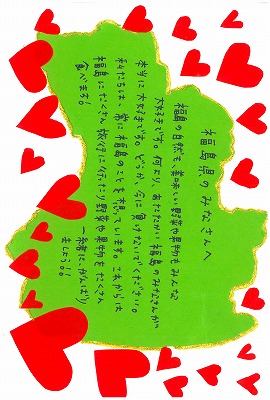 福島県のみなさんへ
福島の自然も、美味しい野菜や果物もみんな
大好きです。何より、あたたかい福島のみなさんが
本当に大好きです。どうか、今に負けないでください。
私たちは、常に福島のことを想っています。これからは
福島にたくさん旅行に行ったり野菜や果物をたくさん
食べます！
一緒にがんばり
ましょう！！